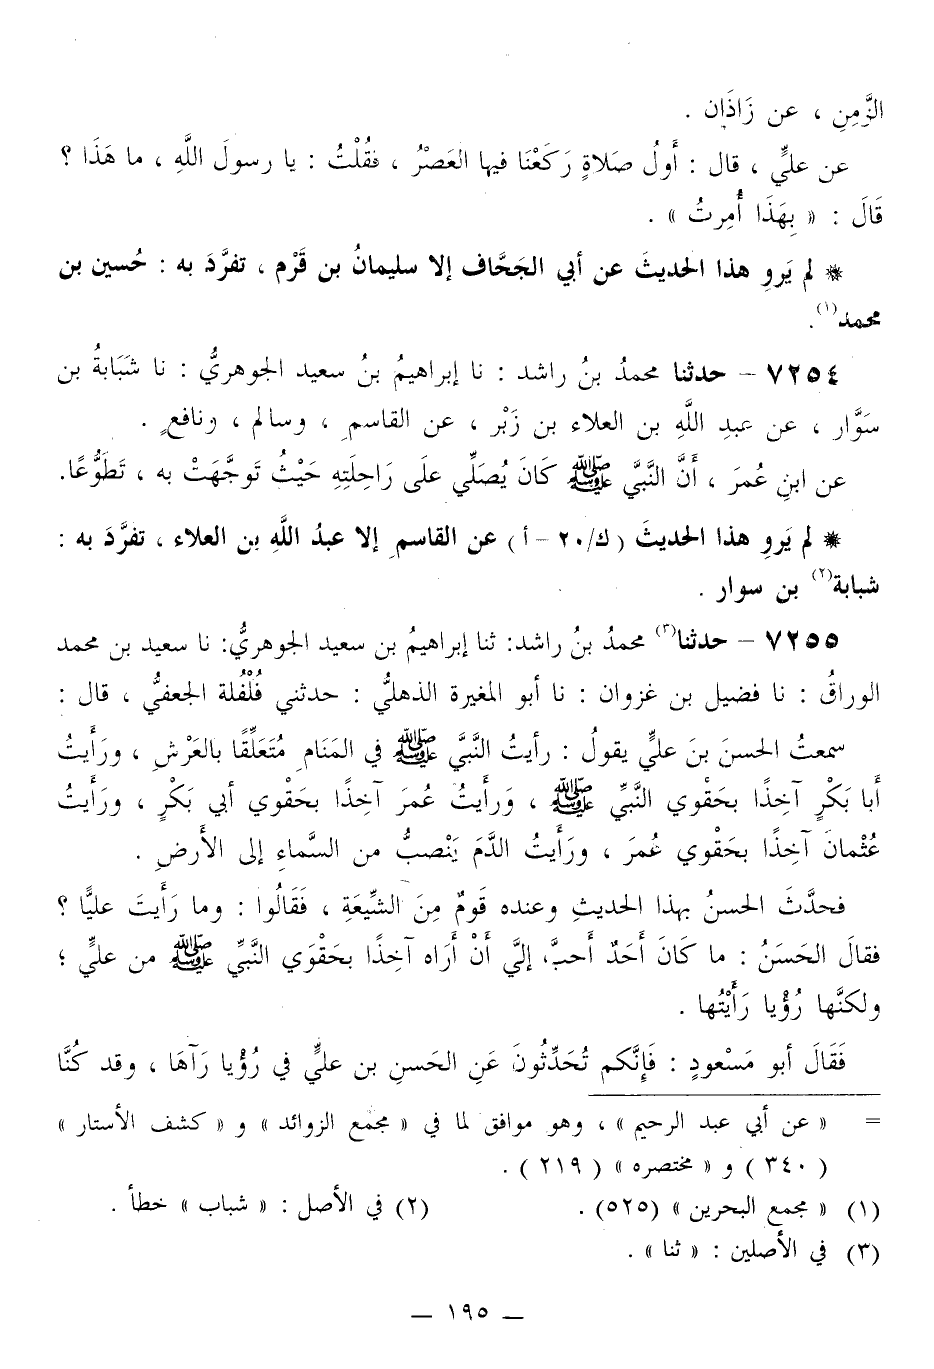 الزَّمِنِ ، عن زَاذَان .
عن عليٍّ ، قال : أَولُ صَلاةٍ رَكَعْنَا فيها العَصْرُ ، فقُلْتُ : يا رسولَ اللَّهِ ، ما هَذَا ؟
قَالَ : « بِهَذَا أُمِرتُ » .
* لم يَروِ هذا الحديثَ عن أبي الجَحَّاف إلا سليمانُ بن قَرْم ، تفرَّدَ به : حُسين بن
محمد(١).
٧٢٥٤ - حدثنا محمدُ بنُ راشد : نا إبراهيمُ بنُ سعيد الجوهريُّ : نا شَبَابةُ بن
سَوَّار ، عن عبدِ اللَّهِ بن العلاء بن زَبْر ، عن القاسمِ ، وسالمٍ ، ونافعٍ .
عن ابنِ عُمرَ ، أَنَّ النَّبيَّ ﷺ كَانَ يُصَلِّي علَى رَاحِلَتِهِ حَيْثُ تَوجَّهَتْ به ، تَطَوُّعًا.
* لم يَروِ هذا الحديثَ (ك/٢٠ - أ) عن القاسمِ إلا عبدُ اللَّهِ بن العلاء ، تفرَّدَ به :
شبابة(٢) بن سوار .
٧٢٥٥ - حدثنا(٣) محمدُ بنُ راشد: ثنا إبراهيمُ بن سعيد الجوهريُّ: نا سعيد بن محمد
الوراقُ : نا فضيل بن غزوان : نا أبو المغيرة الذهليُّ : حدثني فُلْفُلة الجعفيُّ ، قال :
سمعتُ الحسنَ بنَ عليٍّ يقولُ : رأيتُ النَّبيَّ ﷺ في المَنَامِ مُتَعَلِّقًا بالعَرْشِ ، ورَأَيتُ
أَبا بَكْرٍ آخِذًا بحَقْوي النَّبيِّ ﷺ ، وَرأَيتُ عُمرَ آخِذًا بحَقْوي أبي بَكْرٍ ، ورَأَيتُ
عُثْمانَ آخِذًا بحَقْوي عُمرَ ، ورَأَيتُ الدَّمَ يَنْصبُّ من السَّماءِ إلى الأَرضِ .
فحدَّثَ الحسنُ بهذا الحديثِ وعنده قَومٌ مِنَ الشِّيعَةِ ، فَقَالُوا : وما رَأَيتَ عليًّا ؟
فقالَ الحَسَنُ : ما كَانَ أَحَدٌ أَحبَّ إليَّ أَنْ أَرَاه آخِذًا بحَقْوَي النَّبيِّ ﷺ من عليٍّ ؛
ولكنَّها رُؤْيا رَأَيْتُها .
فَقَالَ أبو مَسْعودٍ : فَإِنَّكم تُحَدِّثُونَ عَنِ الحَسنِ بن عليٍّ في رُؤْيا رَآهَا ، وقد كُنَّا
= « عن أبي عبد الرحيم » ، وهو موافق لما في « مجمع الزوائد » و « كشف الأستار »
(٣٤٠) و « مختصره » (٢١٩) .
(١) « مجمع البحرين » (٥٢٥) . (٢) في الأصل : « شباب » خطأ .
(٣) في الأصلين : « ثنا » .
— ١٩٥ —